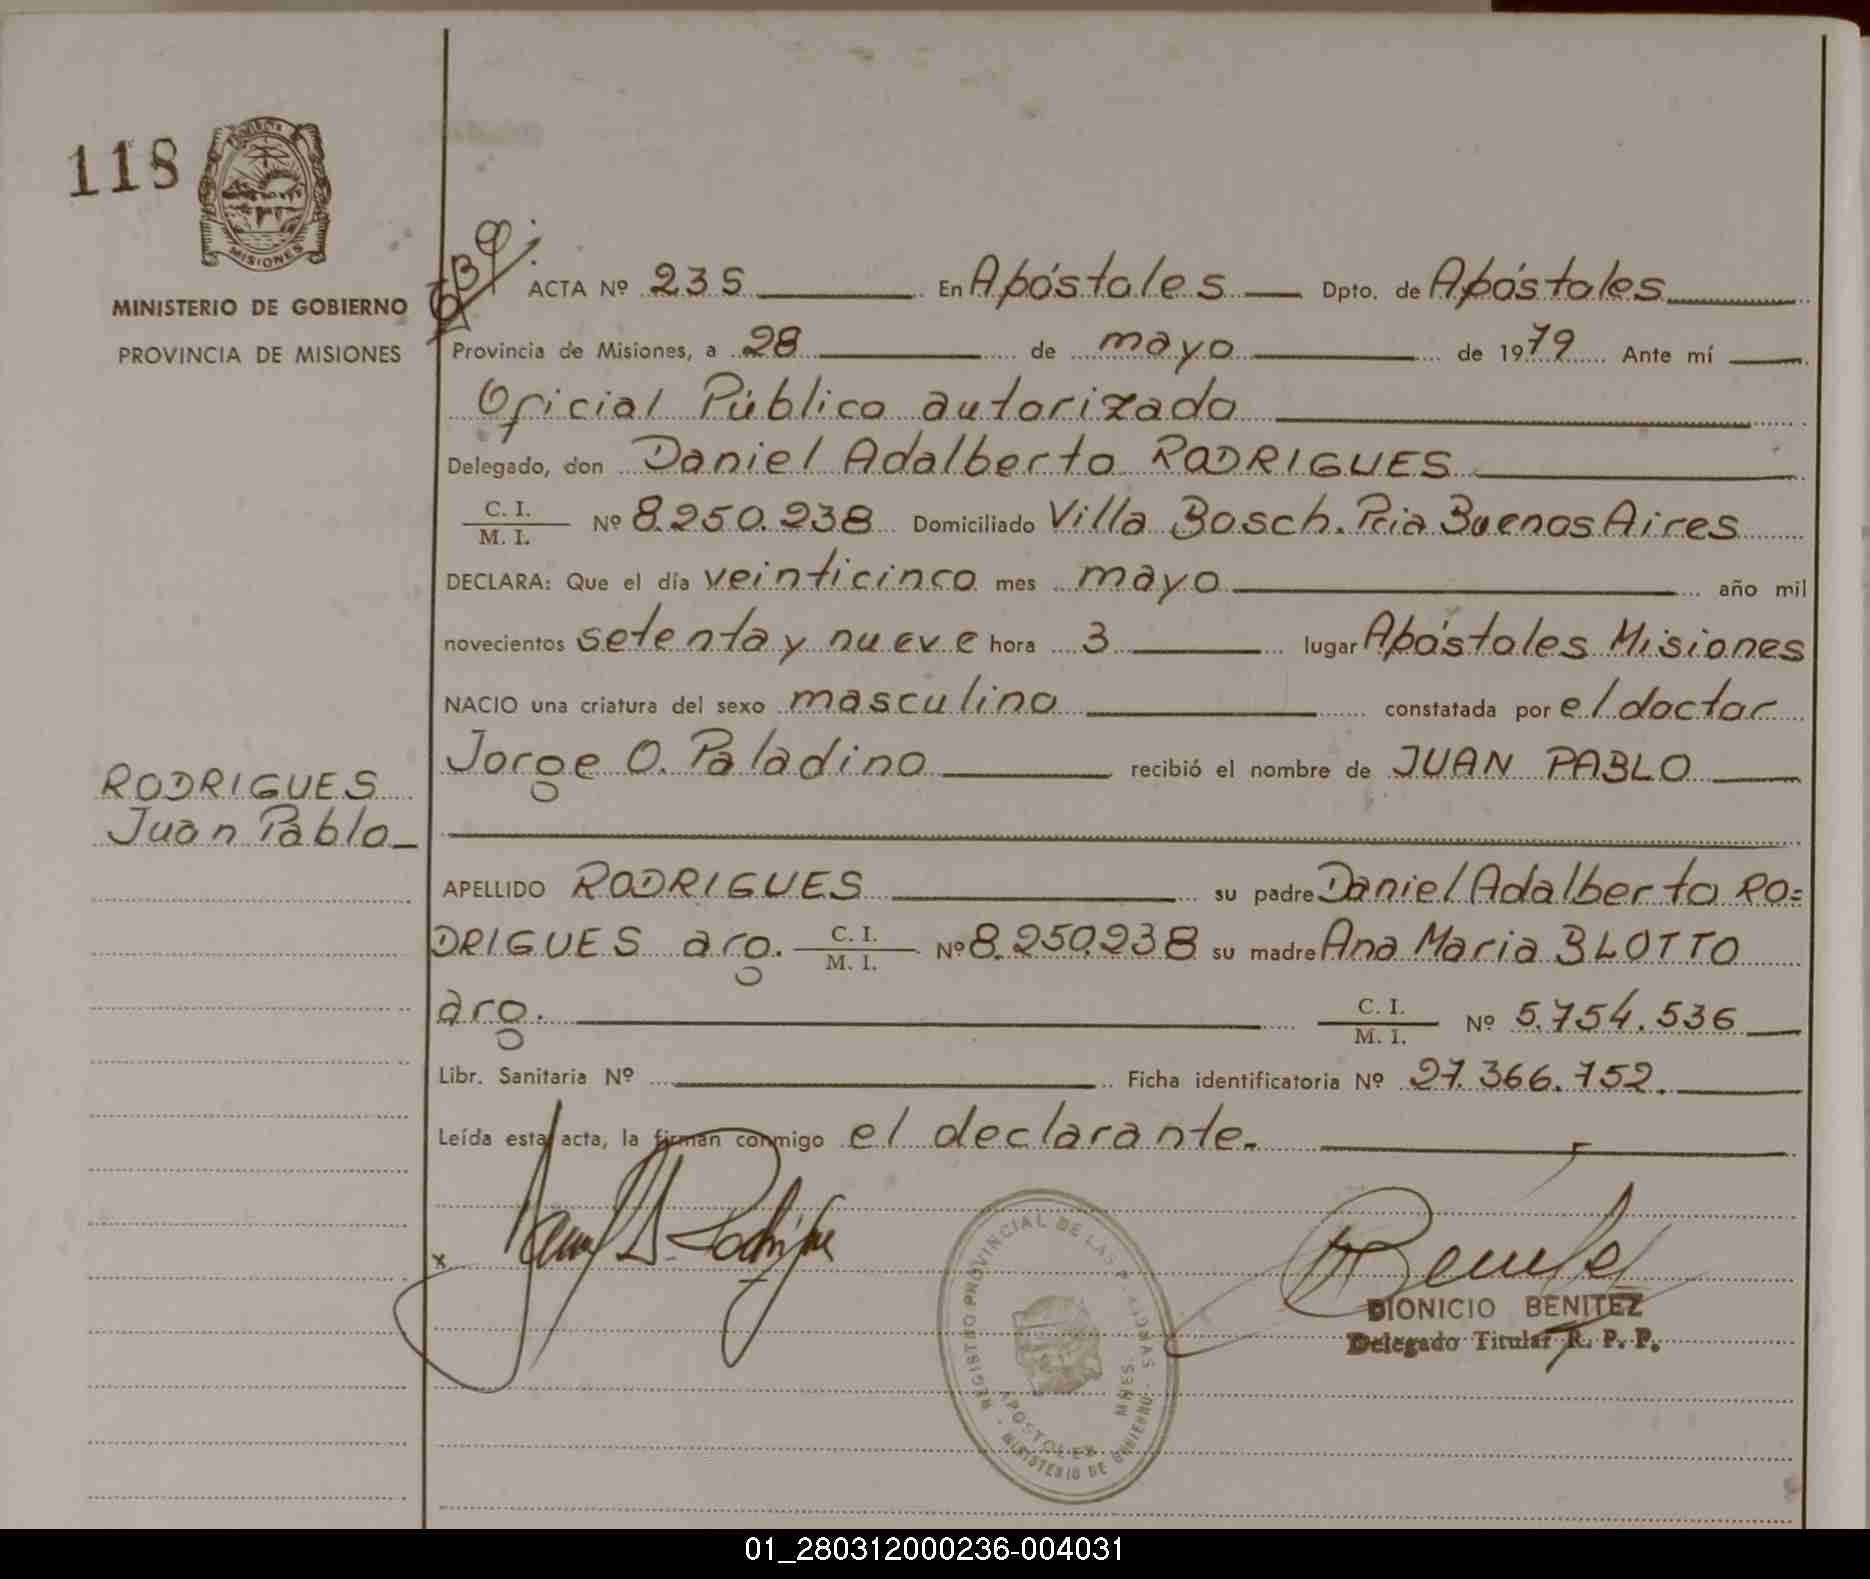 118
MISIONES
MINISTERIO DE GOBIERNO
PROVINCIA DE MISIONES
ACTA Nº 235 En Apóstoles Dpto. de Apóstoles
Provincia de Misiones, a 28 de mayo de 1979 Ante mí
Oficial Público autorizado
Delegado, don Daniel Adalberto RODRIGUES
C. I.
M. I. Nº 8.250.238 Domiciliado Villa Bosch. Pcia Buenos Aires
DECLARA: Que el día veinticinco mes mayo año mil
novecientos setenta y nueve hora 3 lugar Apóstoles Misiones
NACIO una criatura del sexo masculino constatada por el doctor
Jorge O. Paladino recibió el nombre de JUAN PABLO
RODRIGUES
Juan Pablo
APELLIDO RODRIGUES su padre Daniel Adalberto RO=
DRIGUES arg. C. I.
M. I. Nº 8.250.238 su madre Ana Maria BLOTTO
arg. C. I.
M. I. Nº 5.754.536
Libr. Sanitaria Nº Ficha identificatoria Nº 27.366.752.
Leída esta acta, la firman conmigo el declarante.
x
REGISTRO PROVINCIAL DE LAS PERSONAS
APOSTOLES MNES.
MINISTERIO DE GOBIERNO
DIONICIO BENITEZ
Delegado Titular R. P. P.
01_280312000236-004031